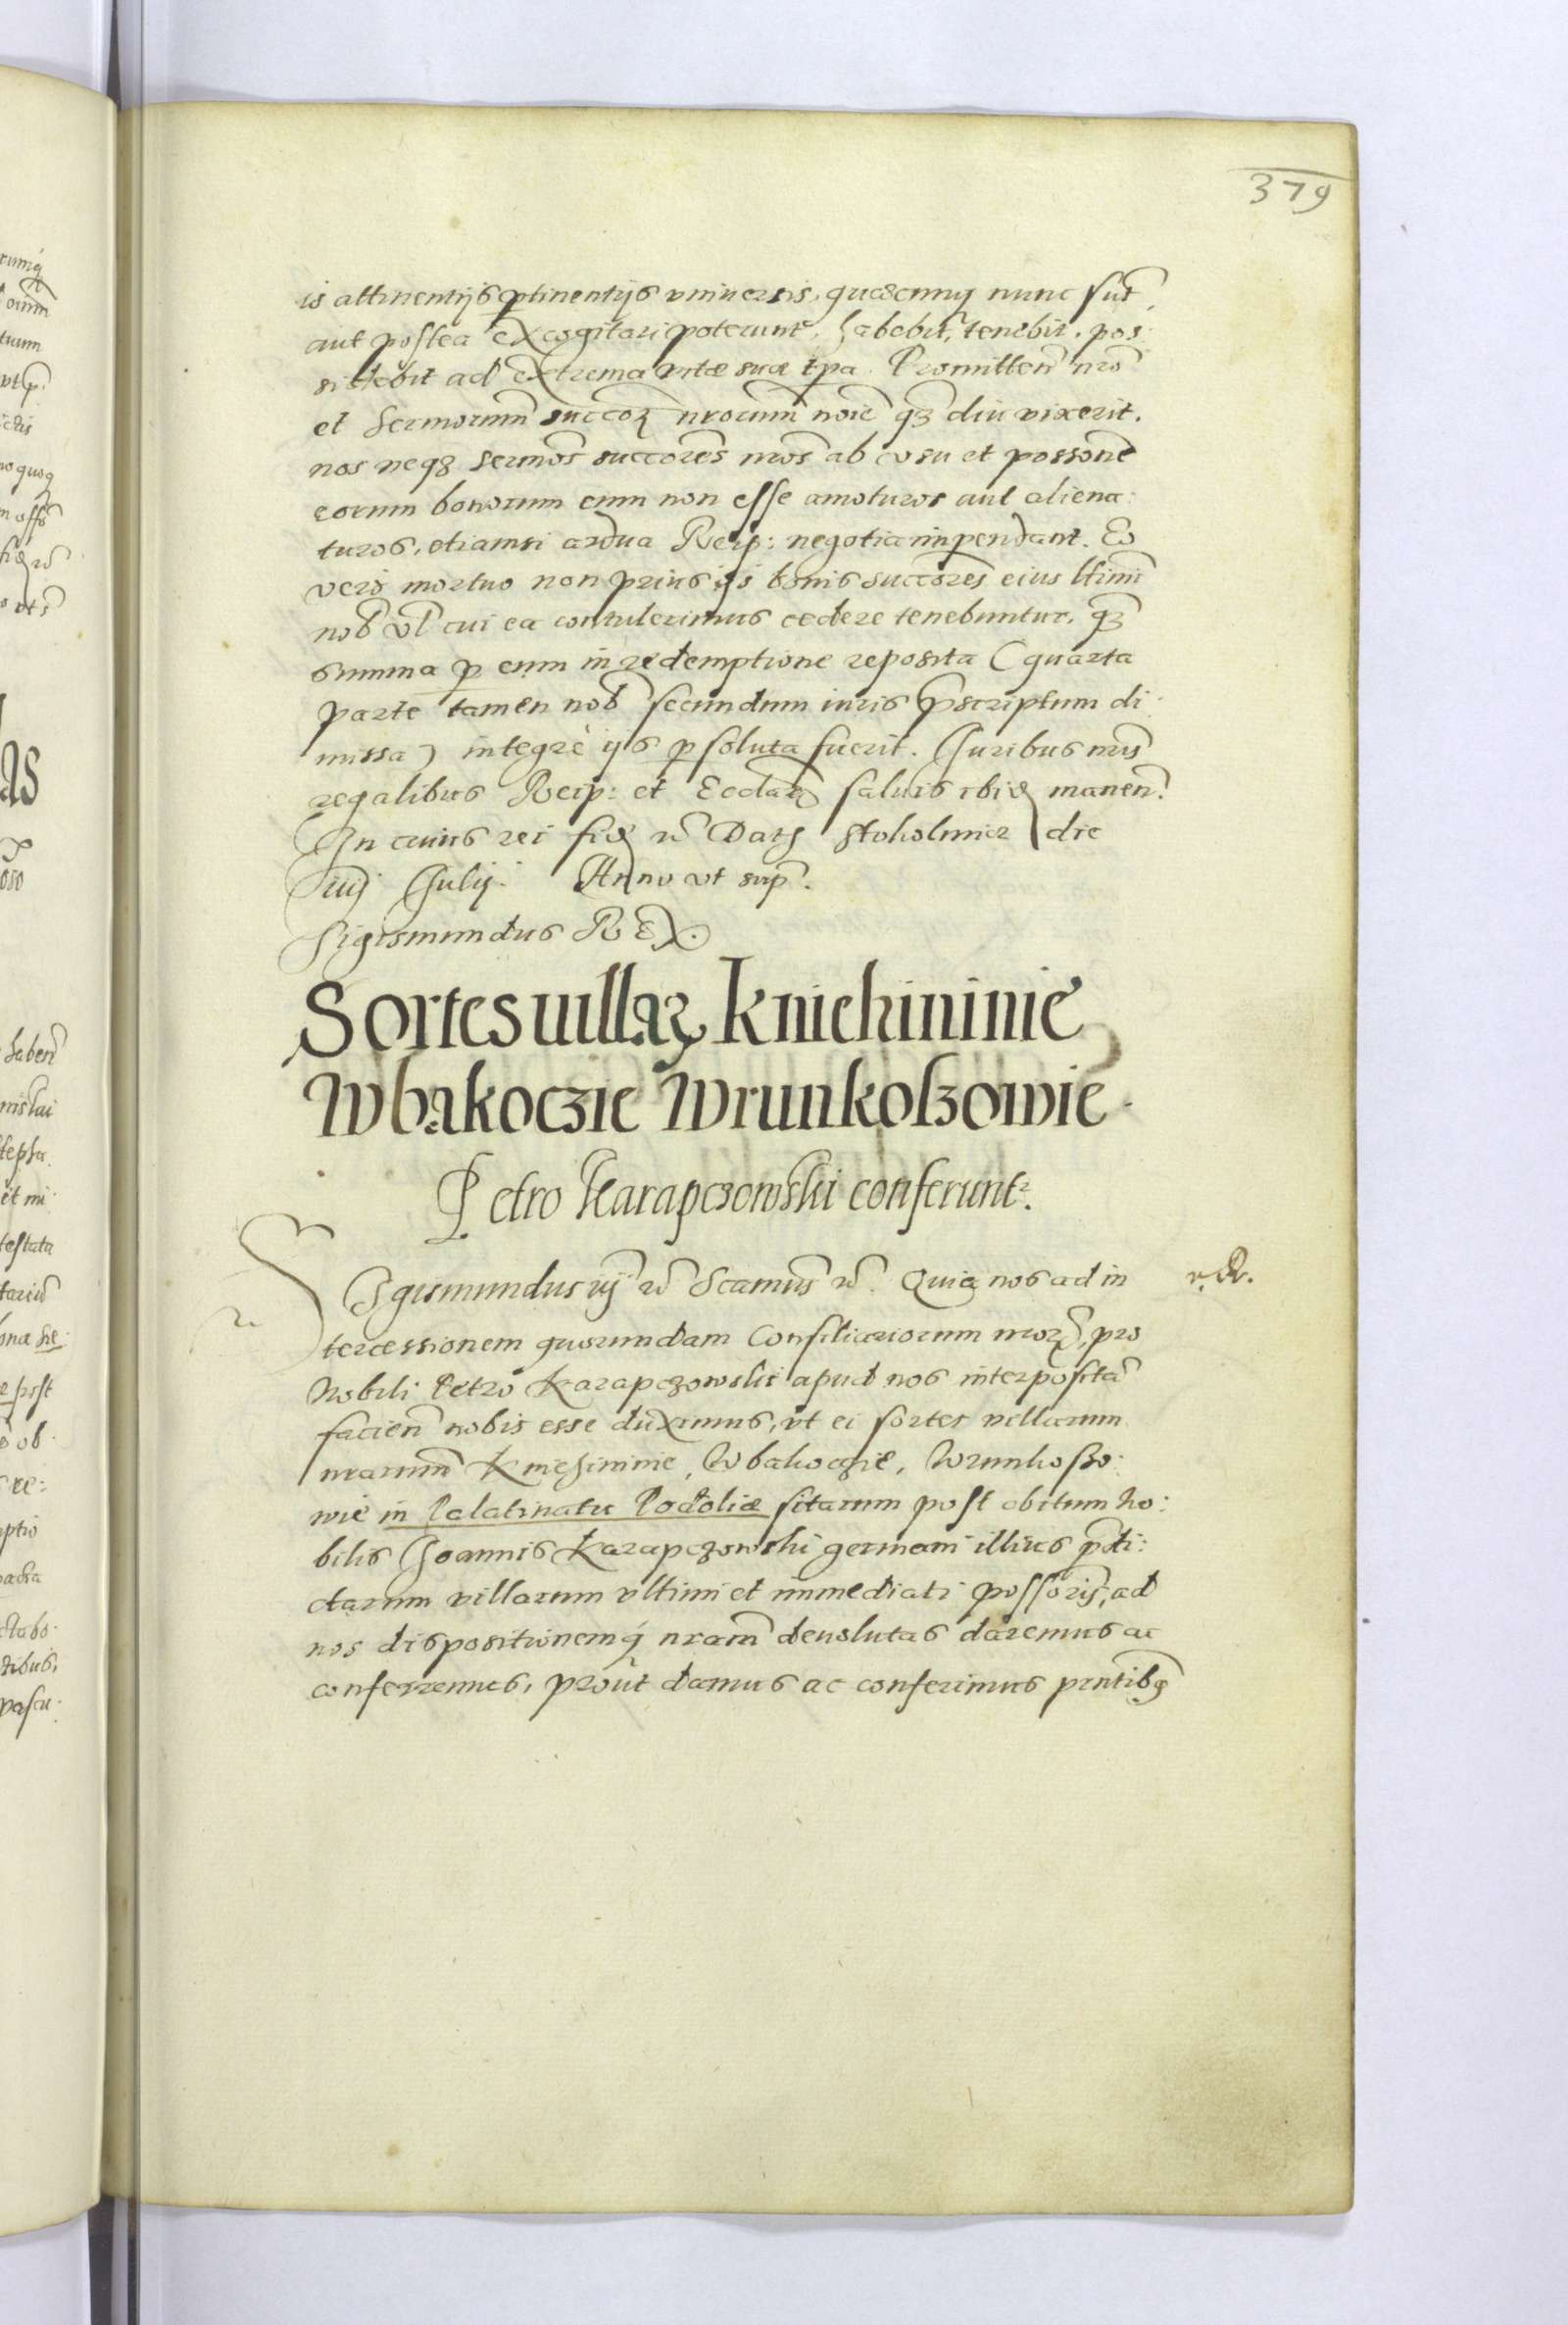 379
is attinentijs ptinentijs vniuersis, quaecunq nunc sut,
aut postea excogitari poterunt, habebit, tenebit, pos:
sidebit ad extrema vitae suae tpa. Promitten nro
et Sermorum succor nrorum noie q diu vixerit.
nos neq3 sermos succores nros ab vsu et possone
eorum bonorum eum non esse amoturos aut aliena:
turos, etiamsi ardua Reip: negotia impendant. Eo
vero mortuo non prius ijs bonis succores eius ltimi
nob vl cui ea contulerimus cedere tenebuntur, q3
summa p eum in redemptione reposita (quarta
parte tamen nob secundum iuris pscriptum di
missa) integrè ijs psoluta fuerit. Juribus nris
regalibus Reip: et Ecclar saluis ibid manen.
In cuius rei fid & Dat Stokolmiae die
iiij Julij. Anno vt sup.
Sigismundus REX.
Sortes uillar Kniehininie
Wbakoczie Wrunkoszowie
Petro Karapczowski conferunt.
Sigismundus iij & Scamus &. Quia nos ad in
r. R.
tercessionem quorumdam Consiliariorum nror, pro
Nobili Petro Karapczowski apud nos interposita
facien nobis esse duximus, vt ei sortes villarum
nrarum Kniehininie, Wbakoczie, Wrunkoszo:
wie in Palatinatu Podoliae sitarum post obitum No:
bilis Joannis Karapczowski germani illius pdi:
ctarum villarum vltimi et immediati possoris, ad
nos dispositionemq nram deuolutas daremus ac
conferremus, prout damus ac conferimus pntibq